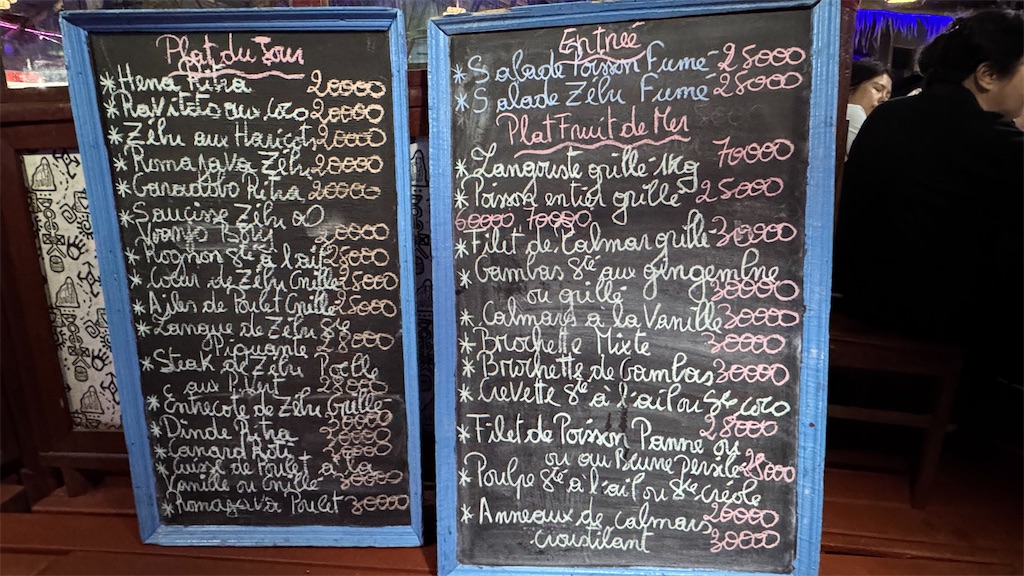 Plat du Jour
* Hena Ritra 20000
* Ravitoto au coco 20000
* Zébu aux Haricot 20000
* Romazava Zébu 20000
* Ritra 20000
* Saucisse Zébu
20000
* Rognon Sté à l'ail 25000
* Cœur de Zébu Grillé 25000
* Ailes de Poulet Grillé 25000
* Langue de Zébu Sté
Piquante 28000
* Steak de Zébu Poêlé
au Poivre 28000
* Entrecote de Zébu Grillé
30000
* Dinde Ritra 30000
* Canard Roti 30000
* Cuisse de Poulet à la
Vanille ou Grillé 30000
* Romazava Poulet 30000
Entrée
* Salade Poisson Fumé 25000
* Salade Zébu Fumé 25000
Plat Fruit de Mer
* Langouste grillé 1kg 70000
* Poisson entier grillé 25000
60000 70000
* Filet de Calmar grillé 30000
* Gambas Sté aux gingembre
ou grillé 30000
* Calmars à la Vanille 30000
* Brochette Mixte 30000
* Brochette de Gambas 30000
* Crevette Sté à l'ail ou Sce coco
28000
* Filet de Poisson Panné ou
ou au Beurre Persilé 28000
* Poulpe Sté à l'ail ou Sce créole
26000
* Anneaux de calmars
croustilant 30000